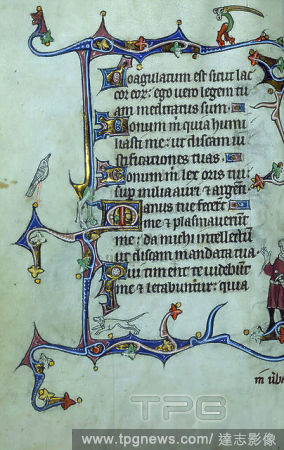 Coagulatum est sicut lac
cor eor: ego vero legem tu
am meditatus sum.
Bonum m quia humi
liasti me: ut discam iu
stificationes tuas.
Bonum m lex oris tui
sup milia auri et argenti
Manus tue fecert
me & plasmaverunt
me: da michi intellectū
ut discam mandata tua
Qui timent te videbūt
me & letabuntur: quia
TPG
www.tpgnews.com / 達志影像